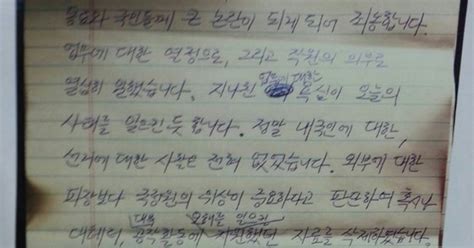 동료와 국민들께 큰 논란이 되게 되어 죄송합니다.
업무에 대한 열정으로, 그리고 직원의 의무로
열심히 일했습니다. 지나친 업무에 대한 욕심이 오늘의
사태를 일으킨 듯 합니다. 정말 내국인에 대한,
선거에 대한 사찰은 전혀 없었습니다. 외부에 대한
파장보다 국정원의 위상이 중요하다고 판단하여 혹시나
대테러, 대북 공작활동에 오해를 일으킨 지원했던 자료를 삭제하였습니다